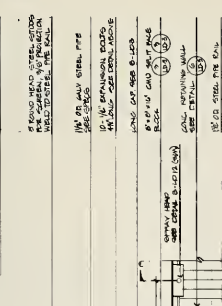 8 ROUND HEAD STEEL STUDS
FOR SCREEN, 3/8" PROJECTION
WELD TO STEEL PIPE RAIL
1 1/2" OD GALV STEEL PIPE
SEE SPECS
10 - 1/2" EXPANSION BOLTS
SEE DETAIL ABOVE
CONC CAP SEE 8-LD3
8" x 8" x 16" CMU SPLIT FACE
BLOCK
CONC RETAINING WALL
SEE DETAIL
SPRAY HEAD
SEE DETAIL 8-LD12 (SYM)
OD STEEL PIPE RAIL